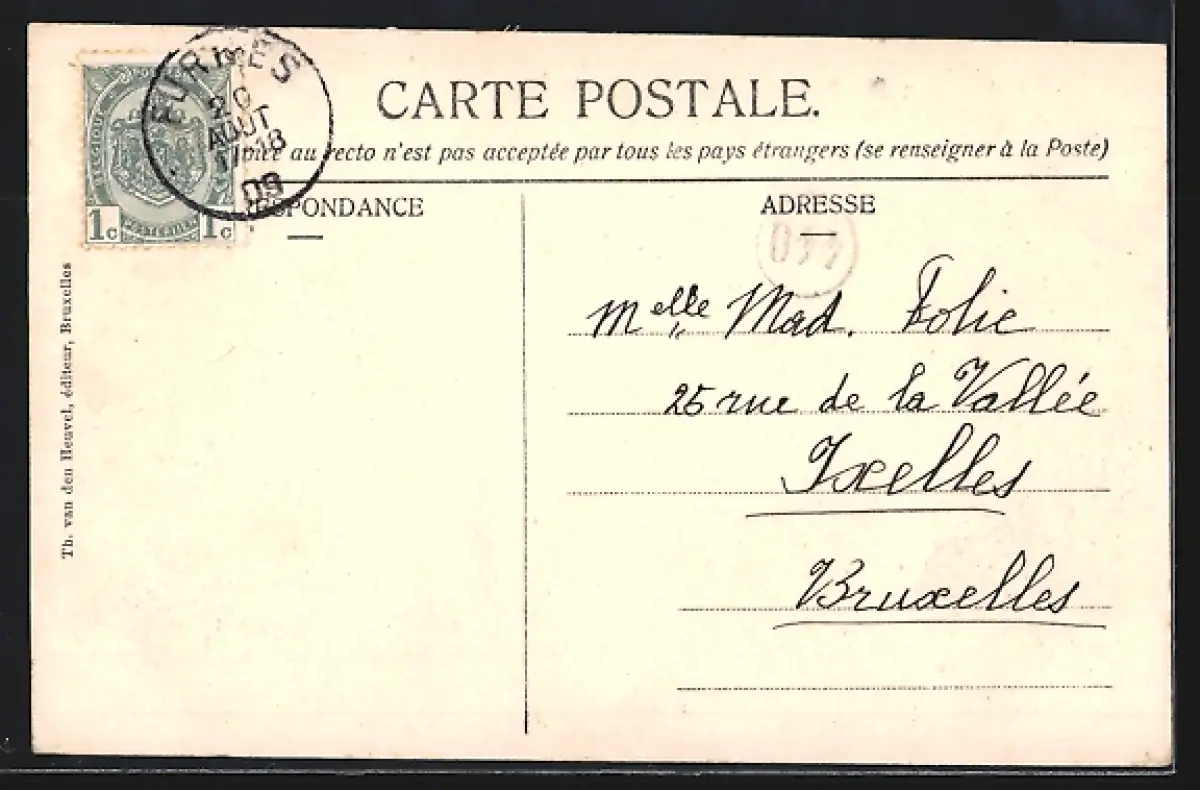 FURNES
20
AOUT
18
09
1c 1c
CARTE POSTALE.
au recto n'est pas acceptée par tous les pays étrangers (se renseigner à la Poste)
ESPONDANCE
ADRESSE
Melle Mad. Folie
25 rue de la Vallée
Ixelles
Bruxelles
Th. van den Heuvel, éditeur, Bruxelles